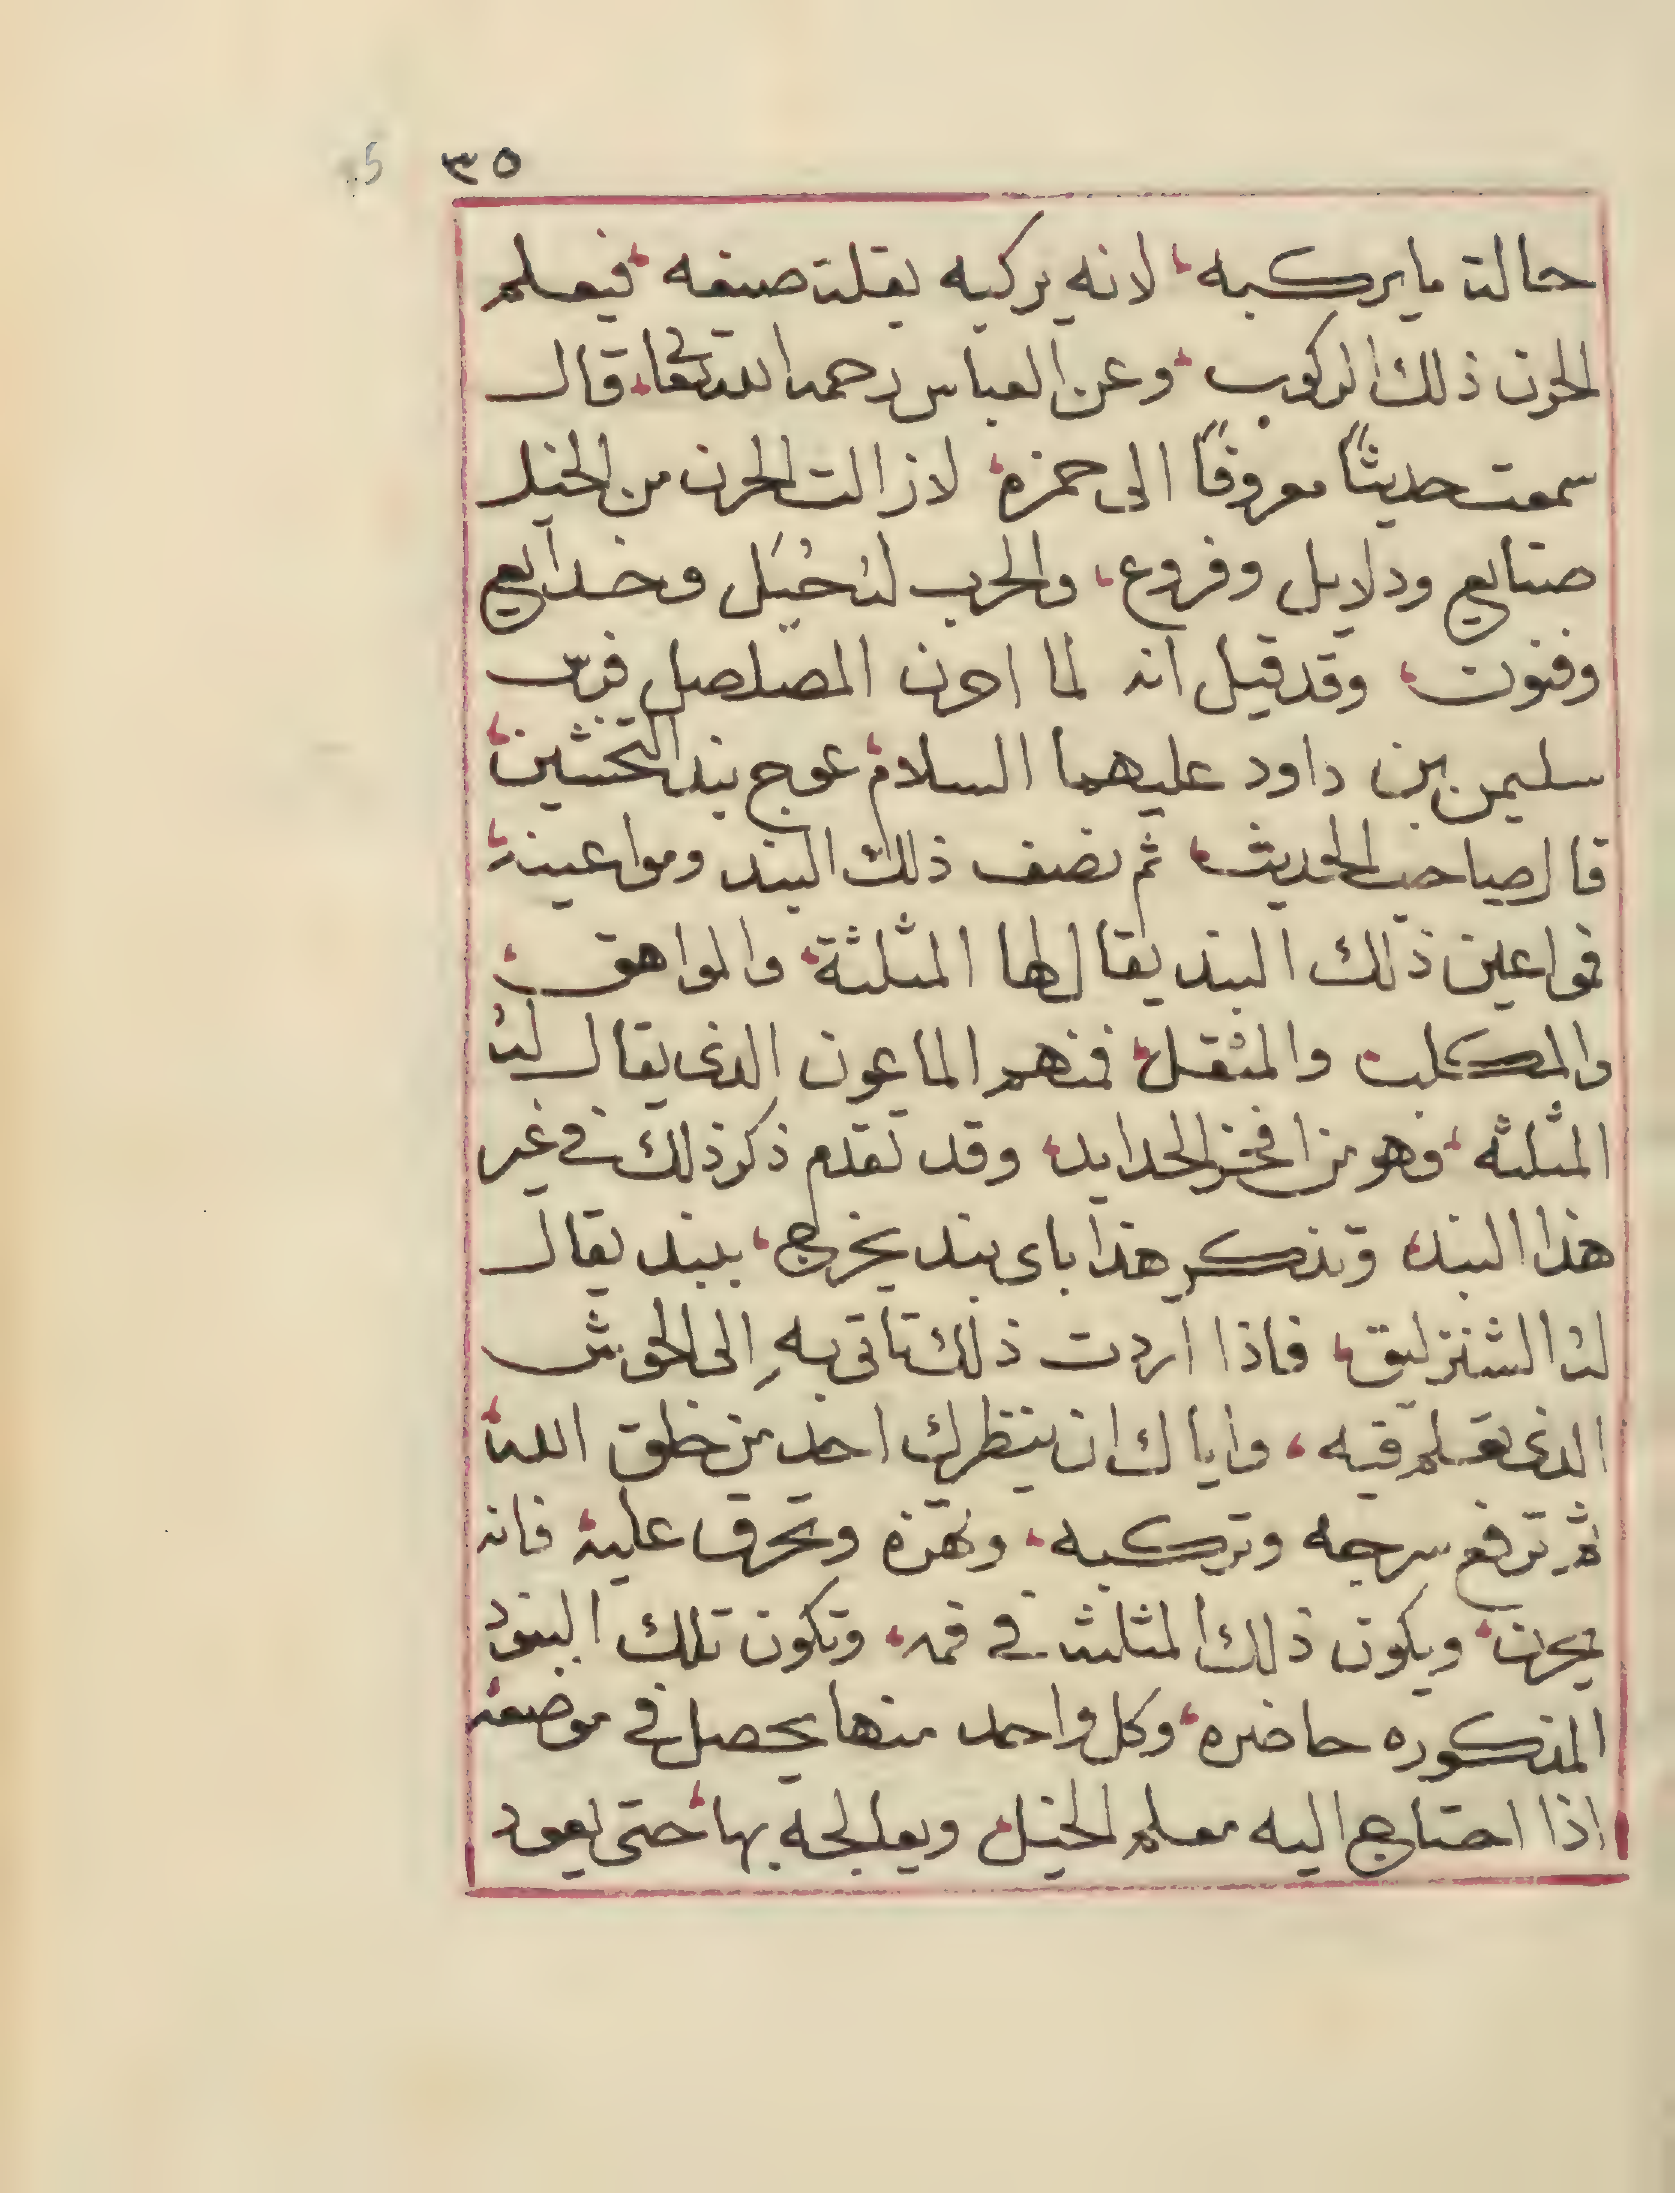 ٣٥
حالة ما يركبه، لانه يركبه بقلة صنعه، فيعلم
الحرن ذلك المركوب، وعن العباس رحمه الله تعالى، قال
سمعت حديثاً معروفاً الى حمزة، لازالت الحرن من الخيل
صنايع ودلايل وفروع، والحرب له حُيَل وخدايع
وفنون، وقد قيل انه لما احرن المصلصل فرس
سليمن بن داود عليهما السلام، عوج بند التخشين،
قال صاحب الحديث، ثم نصف ذلك البند ومواعينهِ،
فمواعين ذلك البند يقال لها المثلثة، والمواهق،
والمكلب والمثقل، فمنهم الماعون الذى يقال له
المثلثه، وهو من افخر الحدايد، وقد تقدم ذكر ذلك فى غير
هذا البند، ونذكر هذا باى بند يخرج، ببند يقال
له الشنزليق، فاذا اردت ذلك تاتى بهِ إلى الحوش
الذى تعلم فيه، واياك ان ينظرك احد من خلق الله،
ثم ترفع سرجه وتركبه، وتهزه وتحرف عليه، فانه
يحرن، ويكون ذلك المثلث فى فمه، وتكون تلك البنود
المذكوره حاضره، وكل واحد منها يحصل فى موضعه
اذا احتاج اليه معلم الخيل، ويعالجه بها، حتى يعود